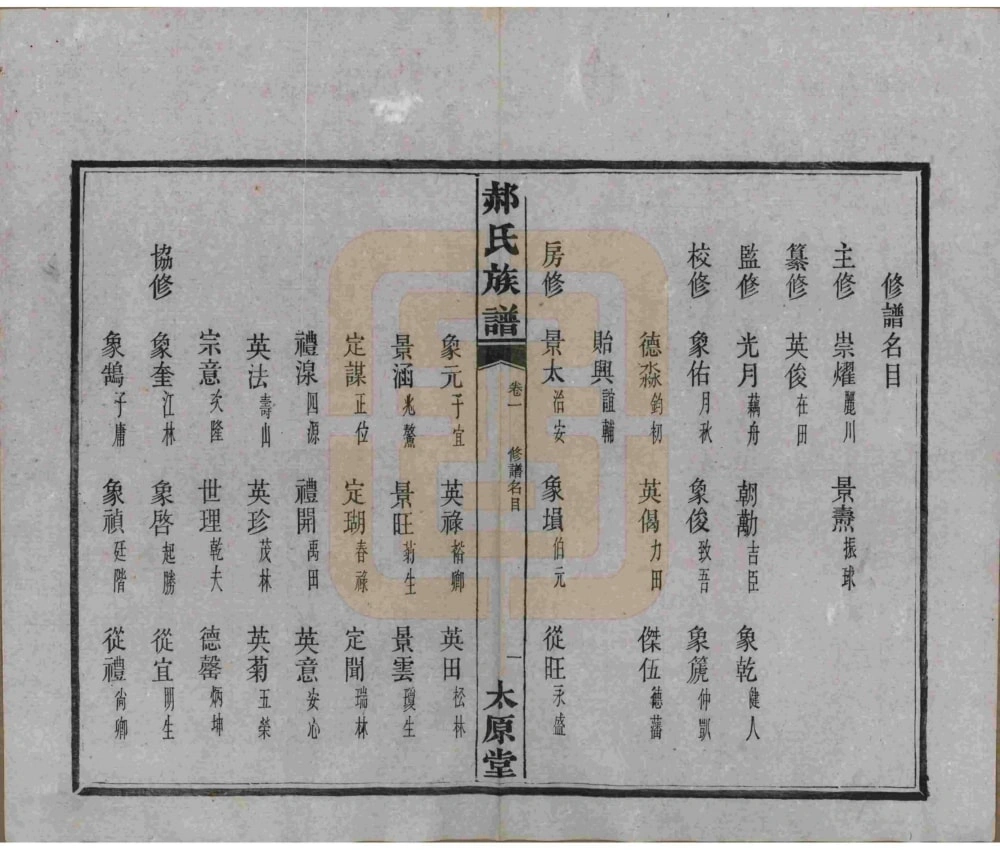 修譜名目
主修 崇燿麗川 景燾振球
纂修 英俊在田
監修 光月藕舟 朝勷吉臣 象乾健人
校修 象佑月秋 象俊致吾 象篪仲凱
德淼鈞礽 英偈力田 傑伍德藩
貽興誼輔
房修 景太治安 象塤伯元 從旺永盛
郝氏族譜 卷一 修譜名目 一 太原堂
象元子宜 英祿裕卿 英田松林
景涵兆鰲 景旺菊生 景雲瓊生
定謀正位 定瑚春祿 定聞瑞林
禮湶四源 禮開禹田 英意安心
英法壽山 英珍茂林 英菊五榮
宗意次隆 世理乾夫 德馨炳坤
協修 象奎江林 象啓起勝 從宜明生
象鵠子庸 象禎廷階 從禮尙卿